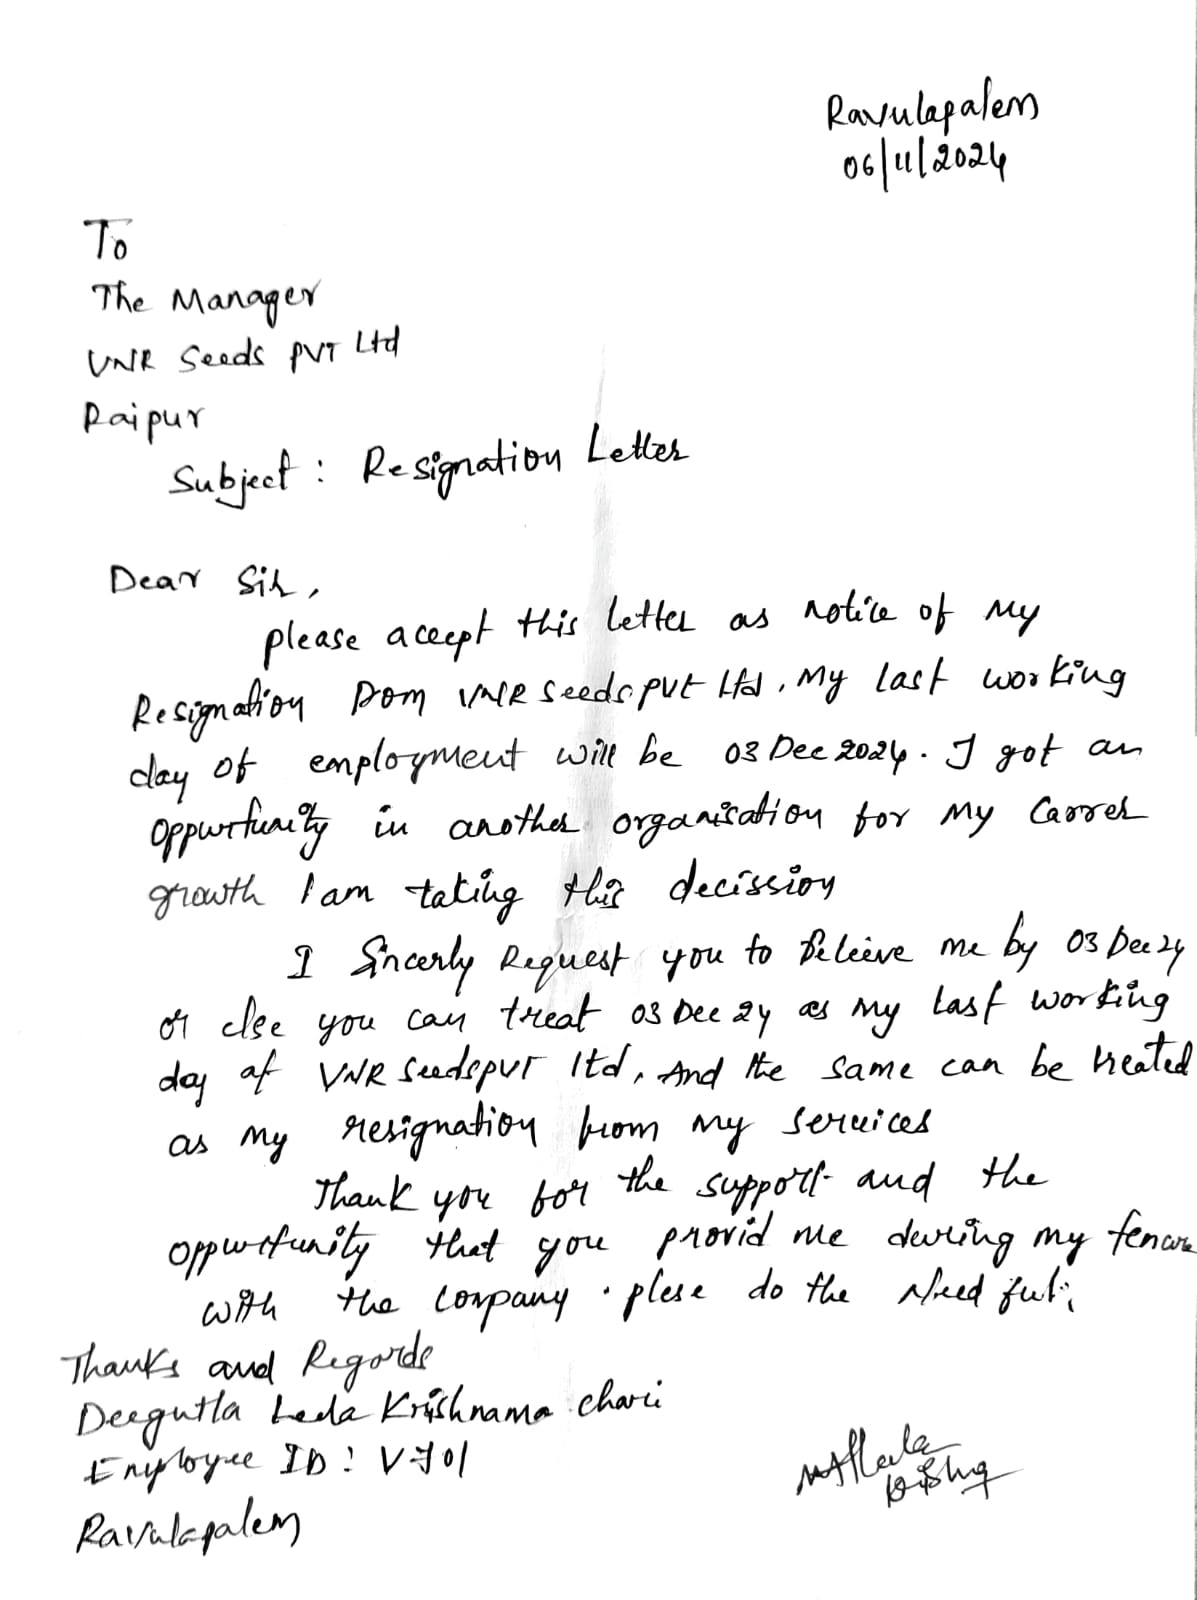 Ravulapalem
06/11/2024
To
The Manager
VNR Seeds PVT Ltd
Raipur
Subject : Resignation Letter
Dear Sir,
please accept this letter as notice of my
Resignation from VNR seeds pvt Ltd. My last working
day of employment will be 03 Dec 2024. I got an
oppurtunity in another organisation for my Carrer
growth I am taking this decission
I Sincerly Request you to Releive me by 03 Dec 24
or else you can treat 03 Dec 24 as my last working
day of VNR seedspvt ltd. And the same can be treated
as my resignation from my services
Thank you for the support and the
oppurtunity that you provid me during my tenure
with the company. plese do the Need ful.
Thanks and Regards
Krishnama chari
Employee ID : V701
Ravulapalem